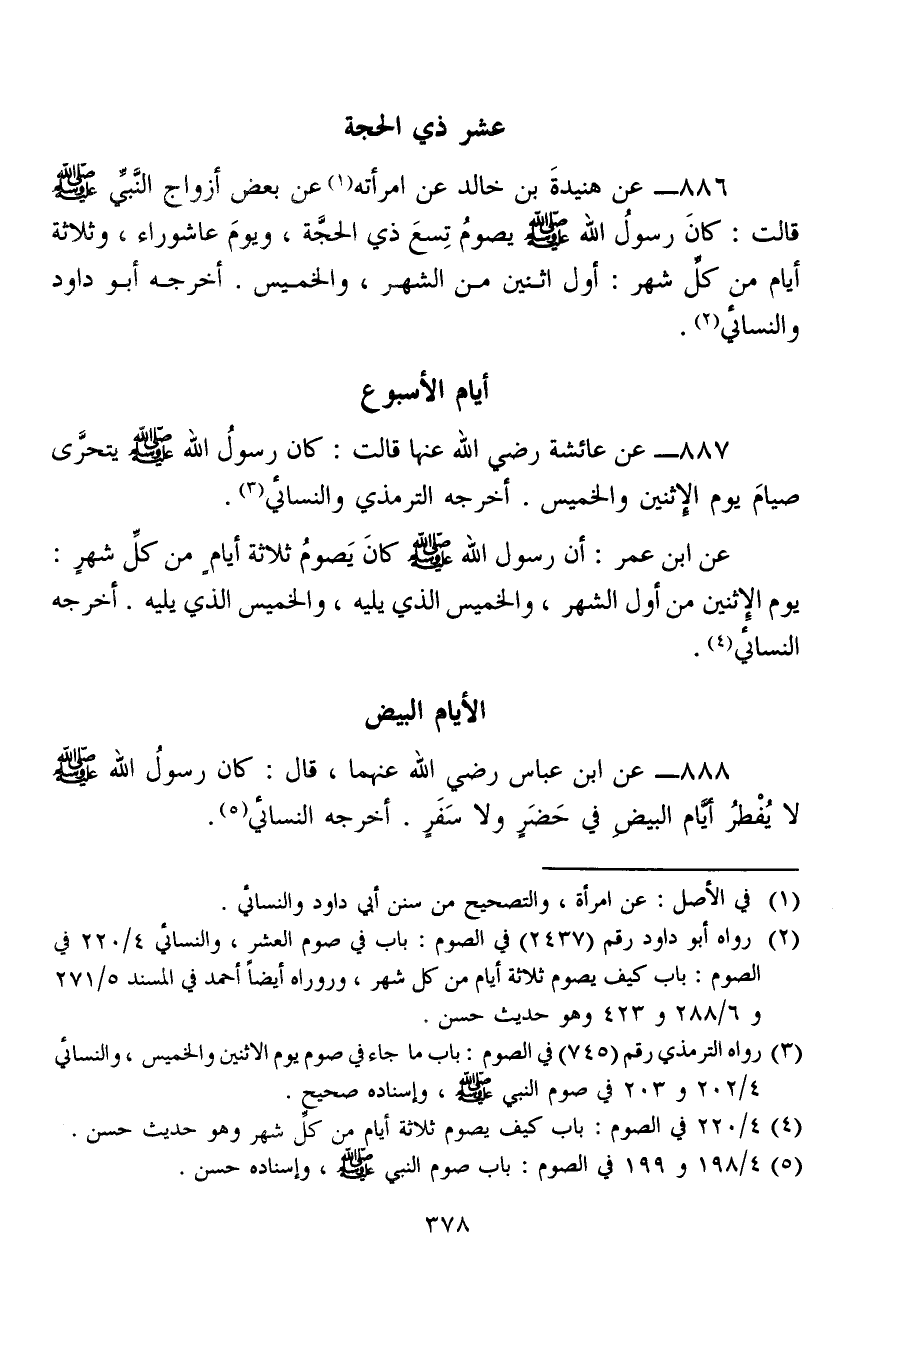 عشر ذي الحجة
٨٨٦ـ عن هنيدةَ بن خالد عن امرأته(١) عن بعض أزواج النَّبيِّ ﷺ
قالت : كانَ رسولُ الله ﷺ يصومُ تِسعَ ذي الحجَّة ، ويومَ عاشوراء ، وثلاثة
أيام من كلِّ شهر : أول اثنين من الشهر ، والخميس . أخرجه أبو داود
والنسائي(٢) .
أيام الأسبوع
٨٨٧ـ عن عائشة رضي الله عنها قالت : كان رسولُ الله ﷺ يتحرَّى
صيامَ يوم الإثنين والخميس . أخرجه الترمذي والنسائي(٣) .
عن ابن عمر : أن رسول الله ﷺ كانَ يَصومُ ثلاثة أيامٍ من كلِّ شهرٍ :
يوم الإثنين من أول الشهر ، والخميس الذي يليه ، والخميس الذي يليه . أخرجه
النسائي(٤) .
الأيام البيض
٨٨٨ـ عن ابن عباس رضي الله عنهما ، قال : كان رسولُ الله ﷺ
لا يُفْطرُ أيَّام البيضِ في حَضَرٍ ولا سَفَرٍ . أخرجه النسائي(٥).
(١) في الأصل : عن امرأة ، والتصحيح من سنن أبي داود والنسائي .
(٢) رواه أبو داود رقم (٢٤٣٧) في الصوم : باب في صوم العشر ، والنسائي ٢٢٠/٤ في
الصوم : باب كيف يصوم ثلاثة أيام من كل شهر ، وروراه أيضاً أحمد في المسند ٢٧١/٥
و ٢٨٨/٦ و ٤٢٣ وهو حديث حسن .
(٣) رواه الترمذي رقم (٧٤٥) في الصوم : باب ما جاء في صوم يوم الاثنين والخميس ، والنسائي
٢٠٢/٤ و ٢٠٣ في صوم النبي ﷺ ، وإسناده صحيح .
(٤) ٢٢٠/٤ في الصوم : باب كيف يصوم ثلاثة أيام من كلِّ شهر وهو حديث حسن .
(٥) ١٩٨/٤ و ١٩٩ في الصوم : باب صوم النبي ﷺ ، وإسناده حسن .
٣٧٨